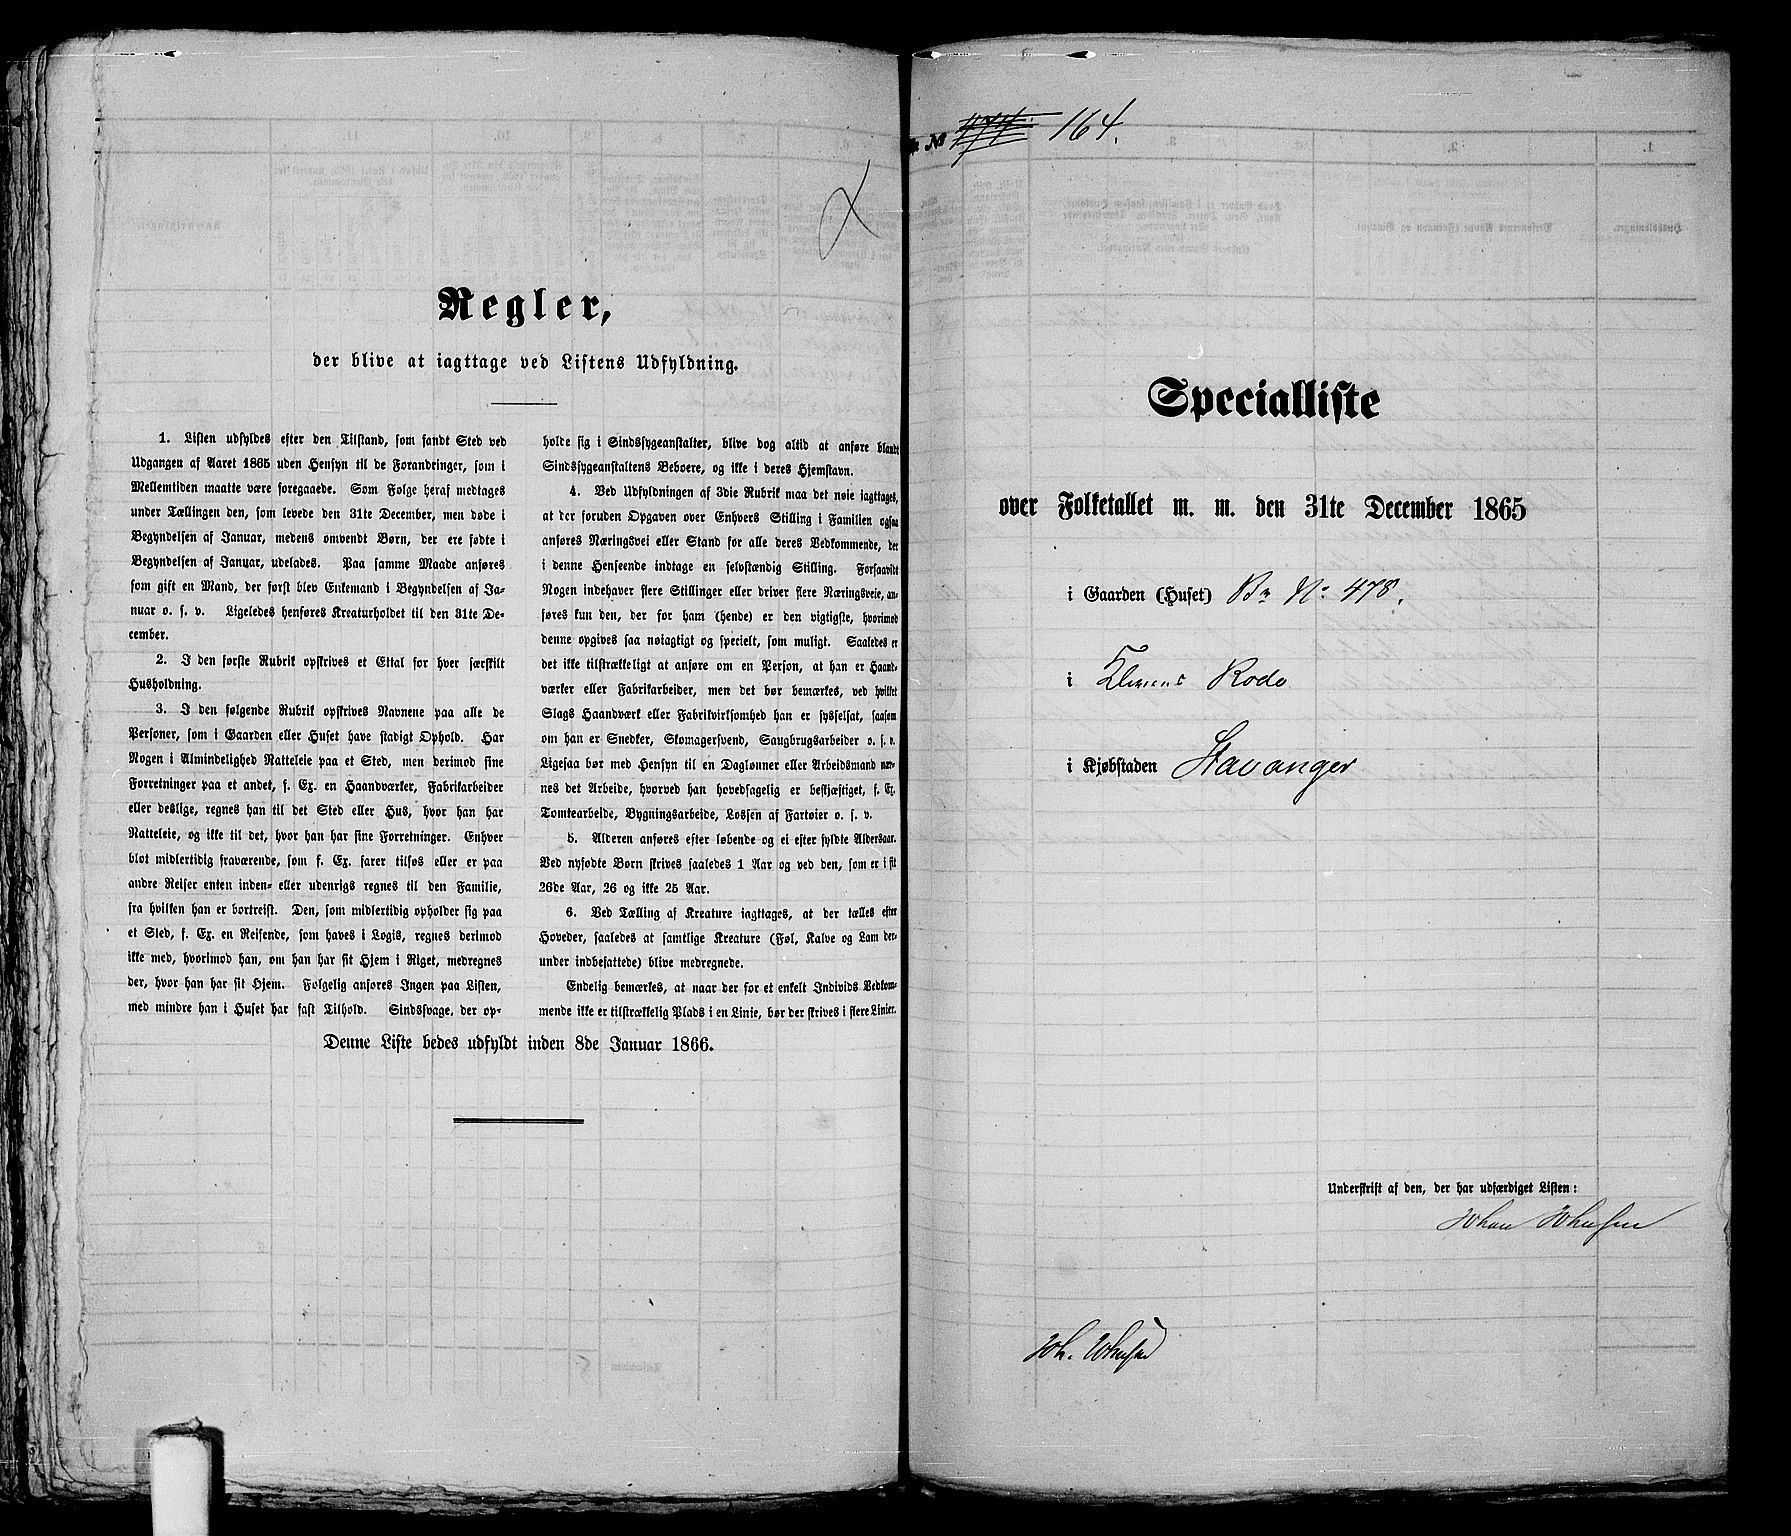 Regler,
der blive at iagttage ved Listens Udfyldning.
1. Listen udfyldes efter den Tilstand, som fandt Sted ved
Udgangen af Aaret 1865 uden Hensyn til de Forandringer, som i
Mellemtiden maatte være foregaaede. Som Følge heraf medtages
under Tællingen den, som levede den 31te December, men døde i
Begyndelsen af Januar, medens omvendt Børn, der ere fødte i
Begyndelsen af Januar, udelades. Paa samme Maade anføres
som gift en Mand, der først blev Enkemand i Begyndelsen af Ja-
nuar o. s. v. Ligeledes henføres Kreaturholdet til den 31te De-
cember.
2. I den første Rubrik opskrives et Ettal for hver særskilt
Husholdning.
3. I den følgende Rubrik opskrives Navnene paa alle de
Personer, som i Gaarden eller Huset have stadigt Ophold. Har
Nogen i Almindelighed Natteleie paa et Sted, men derimod sine
Forretninger paa et andet, f. Ex. en Haandværker, Fabrikarbeider
eller deslige, regnes han til det Sted eller Hus, hvor han har
Natteleie, og ikke til det, hvor han har sine Forretninger. Enhver
blot midlertidig fraværende, som f. Ex. farer tilsøs eller er paa
andre Reiser enten inden- eller udenrigs regnes til den Familie,
fra hvilken han er bortreist. Den, som midlertidig opholder sig paa
et Sted, f. Ex. en Reisende, som haves i Logis, regnes derimod
ikke med, hvorimod han, om han har sit Hjem i Riget, medregnes
der, hvor han har sit Hjem. Følgelig anføres Ingen paa Listen,
med mindre han i Huset har fast Tilhold. Sindssvage, der op-
holde sig i Sindssygeanstalter, blive dog altid at anføre blandt
Sindssygeanstaltens Beboere, og ikke i deres Hjemstavn.
4. Ved Udfyldningen af 3die Rubrik maa det nøie iagttages,
at der foruden Opgaven over Enhvers Stilling i Familien ogsaa
anføres Næringsvei eller Stand for alle deres Vedkommende, der
i denne Henseende indtage en selvstændig Stilling. Forsaavidt
Nogen indehaver flere Stillinger eller driver flere Næringsveie, an-
føres kun den, der for ham (hende) er den vigtigste, hvorimod
denne opgives saa nøiagtigt og specielt, som muligt. Saaledes er
det ikke tilstrækkeligt at anføre om en Person, at han er Haand-
værker eller Fabrikarbeider, men det bør bemærkes, ved hvilket
Slags Haandværk eller Fabrikvirksomhed han er sysselsat, saasom
om han er Snedker, Skomagersvend, Saugbrugsarbeider o. s. v.
Ligesaa bør med Hensyn til en Daglønner eller Arbeidsmand næv-
nes det Arbeide, hvorved han hovedsagelig er beskjæftiget, f. Ex.
Tomtearbeide, Bygningsarbeide, Lossen af Fartøier o. s. v.
5. Alderen anføres efter løbende og ei efter fyldte Aldersaar.
Ved nyfødte Børn skrives saaledes 1 Aar og ved den, som er i sit
26de Aar, 26 og ikke 25 Aar.
6. Ved Tælling af Kreature iagttages, at der tælles efter
Hoveder, saaledes at samtlige Kreature (Føl, Kalve og Lam der-
under indbefattede) blive medregnede.
Endelig bemærkes, at naar der for et enkelt Individs Vedkom-
mende ikke er tilstrækkelig Plads i en Linie, bør der skrives i flere Linier.
Denne Liste bedes udfyldt inden 8de Januar 1866.
No 164.
Specialliste
over Folketallet m. m. den 31te December 1865
i Gaarden (Huset) Br No 478.
i Klewens Rode
i Kjøbstaden Stavanger
Underskrift af den, der har udfærdiget Listen:
Johan Johnsen
Joh. Johnsen